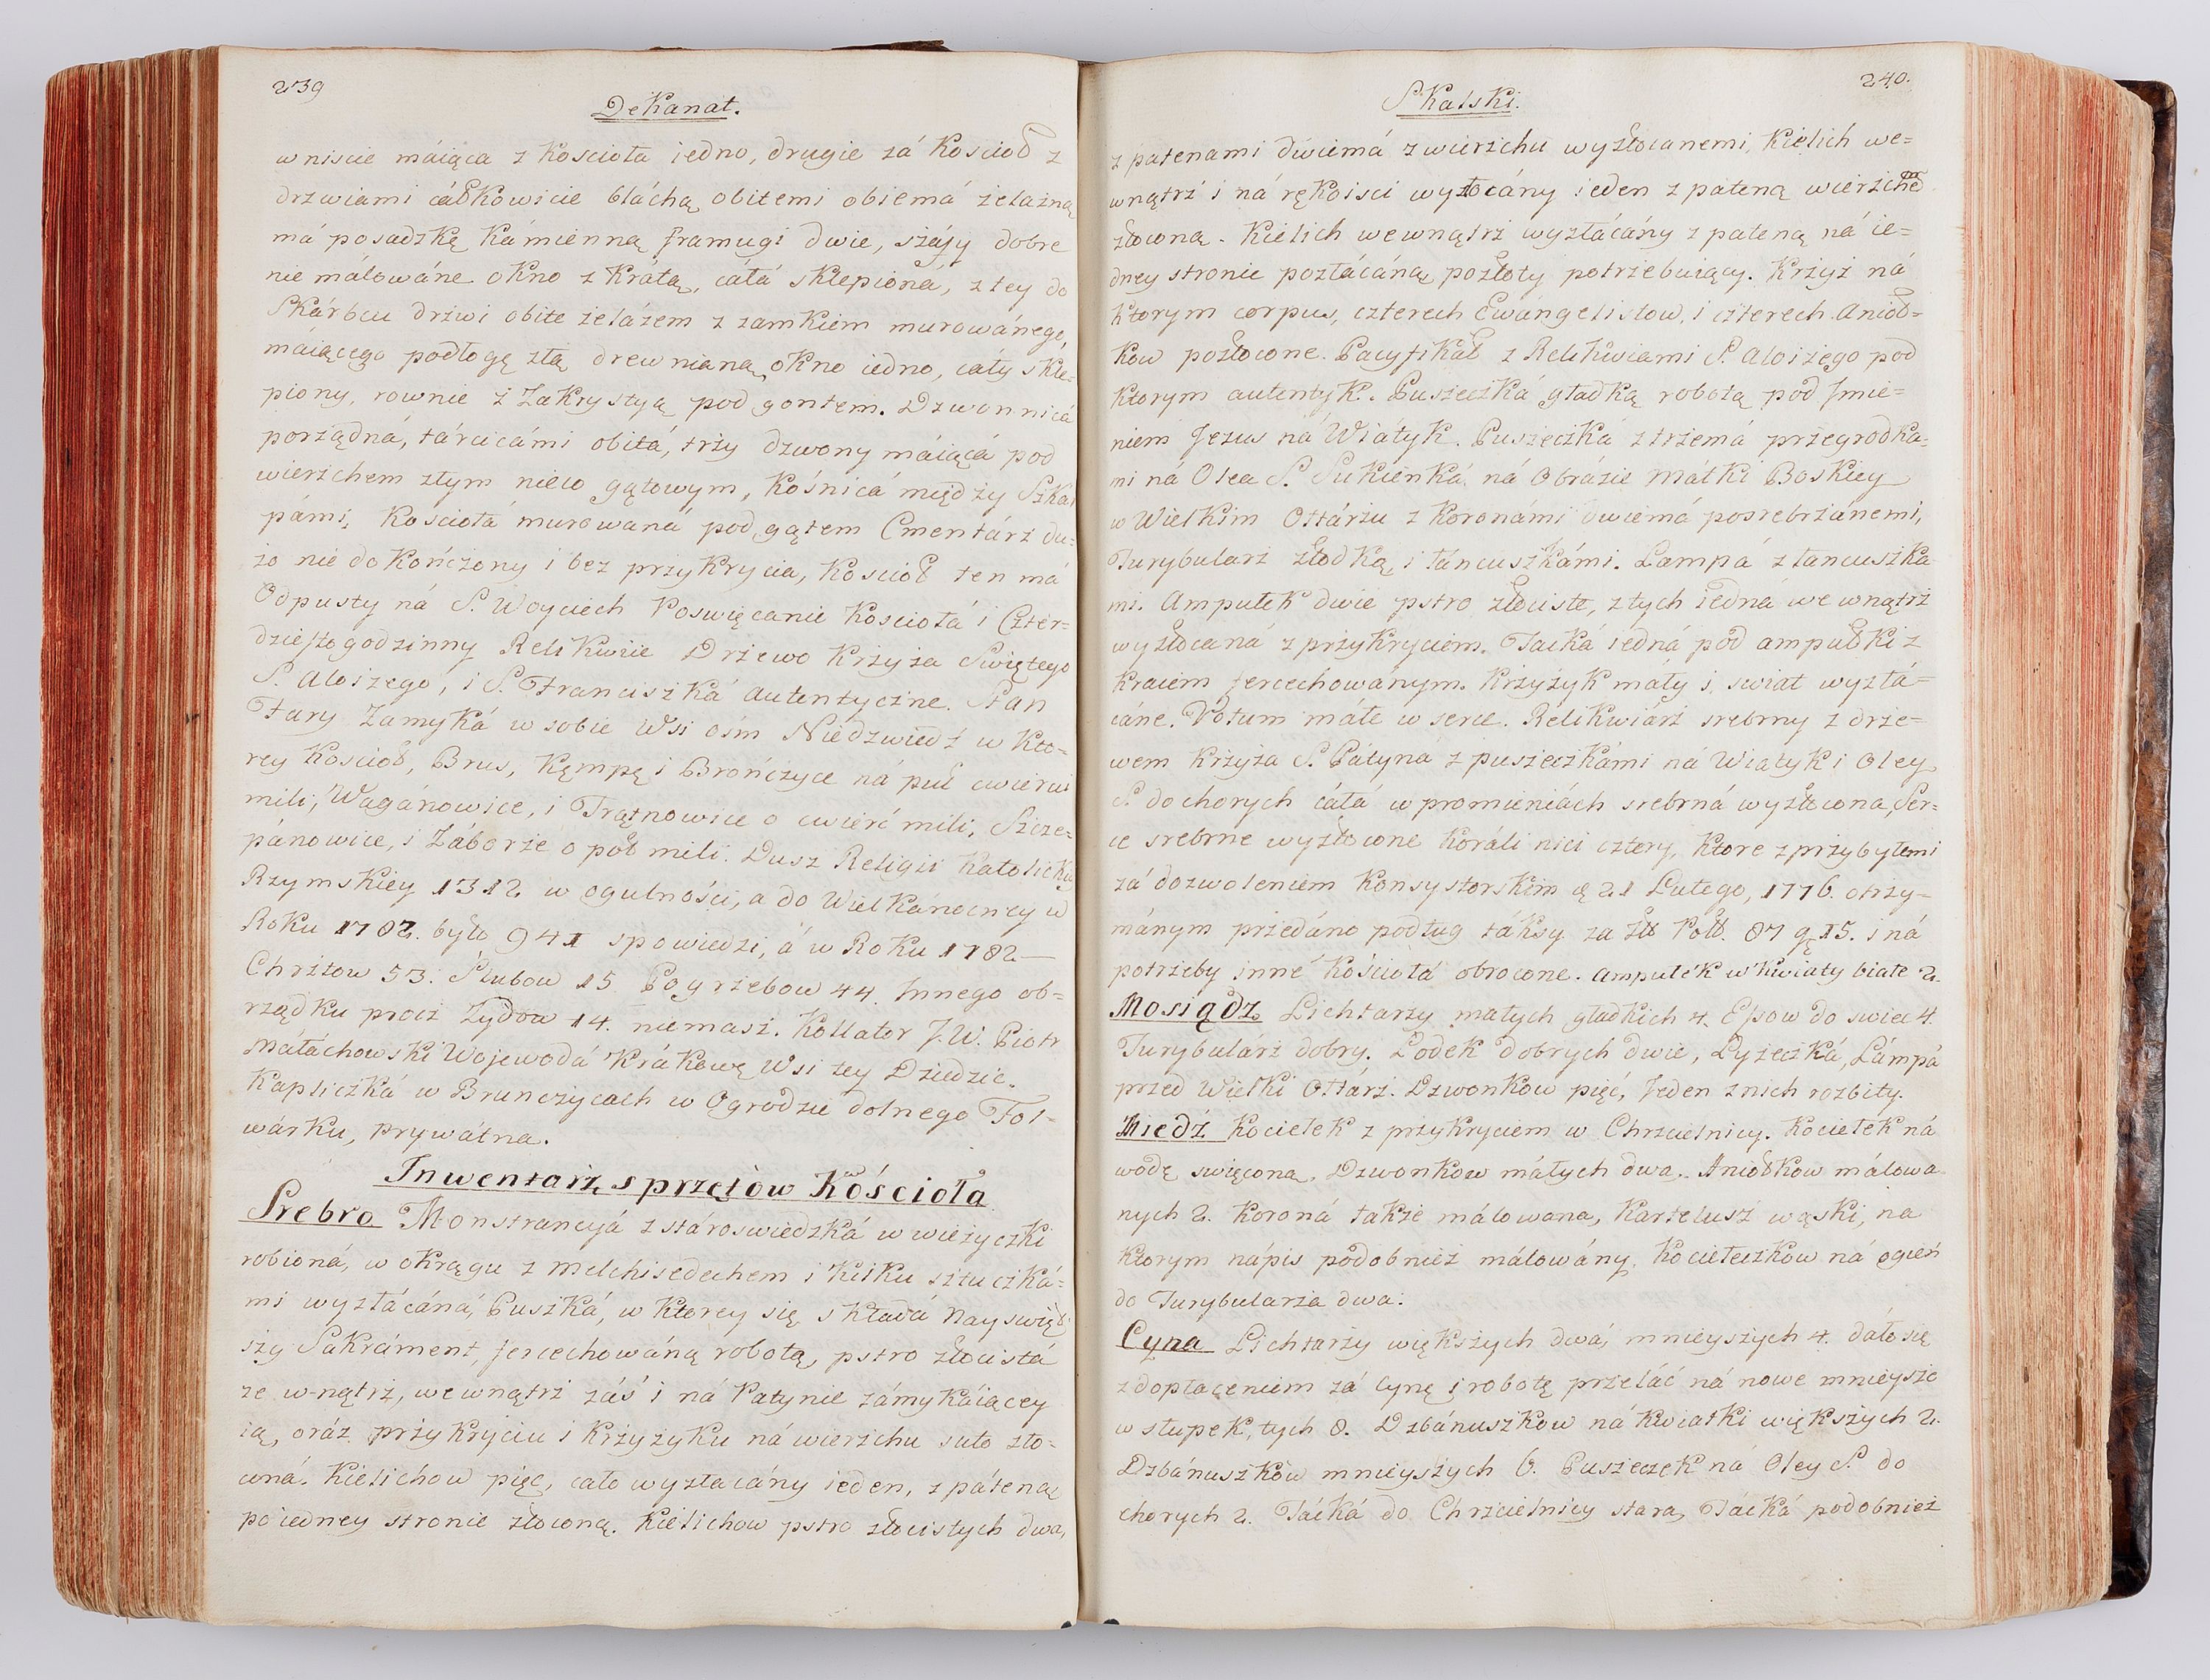 239
Dekanat.
wniscie máiąca z Koscioła iedno, drugie zá Kościoł z
drzwiami cáłkowicie bláchą obitemi obiemá żelazną
má posadzkę Kámienną framugi dwie, szafy dobre
nie málowáne okno z Kratą, cáłá sklepioná, z tey do
Skárbcu drzwi obite żelázem z zamkiem murowánego,
máiącego podłogę złą drewnianą, okno iedno, cały skle-
piony, rownie z Zakrystyą pod gontem. Dzwonnicá
porządná, tárcicámi obitá, trzy dzwony máiącá pod
wierzchem złym nieco gątowym, Kośnicá między Szkar
pámi, Kościołá murowaná pod gątem Cmentárz du=
żo nie dokończony i bez przykrycia, Kościoł ten má
Odpusty ná S. Woyciech Poswięcanie Kościołá i Czter=
dziestogodzinny Relikwiie Drzewo Krzyża Swiętego
S. Aloizego, i S. Franciszká autentyczne. Stan
Fary Zamyká w sobie Wsi ośm Niedzwiedź w Kto=
rey Kościoł, Brus, Kępę i Brończyce ná puł cwierci
mili, Wagánowice, i Trątnowice o cwierć mili, Szcze=
pánowice, i Záborze o poł mili. Dusz Religii Katolicky
Rzymskiey 1312 w ogulności, a do Wielkanocney w
Roku 1782. było 941 spowiedzi, á w Roku 1782—
Chrztow 53. Slubow 15 Pogrzebow 44. Innego ob=
rządku procz Zydow 14. niemasz. Kollator J.W. Piotr
Małáchowski Wojewodá Krákowę Wsi tey Dziedzic.
Kapliczká w Brunczycach w Ogrodzie dolnego Fol-
wárku, prywátna.
Inwentarz sprzętów Kościoła
Srebro Monstrancyá z stároswiedzká w wieżyczki
robioná, w okrągu z Melchisedechem i Kilku sztuczká=
mi wyzłácáná, Puszká, w ktorey się składá Nayswięt
szy Sakráment, fercechowáną robotą, pstro złocistá
ze w-nątrz, wewnątrz záś i ná Patynie zámykáiącey
ią, oráz przykryciu i Krzyżyku ná wierzchu suto zło=
coná. Kielichow pięć, cało wyzłacány ieden, z páteną
po iedney stronie złoconą. Kielichow pstro złocistych dwa,
240.
Skalski.
z patenami dwiemá z wierzchu wyzłocanemi, Kielich we=
wnątrz i ná rękoiści wyzłocány ieden z pateną wierzchem
złoconą. Kielich wewnątrz wyzłácány z pateną ná ie=
dney stronie pozłácáną pozłoty potrzebuiący. Krzyż ná
ktorym corpus, czterech Ewángelistow, i czterech Anioł=
kow pozłocone. Pacyfikał z Relikwiami S. Aloizego pod
ktorym autentyk. Puszeczká gładką robotą pod Jmie=
niem Jezus ná Wiátyk. Puszeczká z trzemá przegrodka=
mi ná Olea S. Sukienká ná Obrázie Mátki Boskiey
w Wielkim Ołtárzu z Koronámi dwiemá posrebrzánemi,
Turybularz złodką i łáncuszkámi. Lampá z łancuszka
mi. Ampułek dwie pstro złociste, z tych iedná wewnątrz
wyzłocaná z przykryciem. Tacká iedná pod ampułki z
kraiem fercechowánym. Krzyżyk máły i swiat wyzłá=
cáne. Votum máłe w serce. Relikwiárz srebrny z drze=
wem Krzyża S. Pátyná z puszeczkámi ná Wiatyk i Oley
S. do chorych cáłá w promieniách srebrná wyzłocona, Ser=
ce srebrne wyzłocone Koráli nici cztery, Ktore z przybyłemi
zá dozwoleniem Konsystorskim ą 21 Lutego, 1776. otrzy-
mánym przedáno podług táksy za Złł Poll. 87 g. 15. i ná
potrzeby inné Kościołá obrocone. Ampułek w Kwiaty białe 2.
Mosiądz Lichtarzy małych gładkich 4. Esow do swiec 4.
Turybularz dobry. Lodek dobrych dwie, Lyżeczká, Lámpá
przed Wielki Ołtárz. Dzwonkow pięć, Jeden z nich rozbity.
Miedź Kociełek z przykryciem w Chrzcielnicy. Kociełek ná
wodę swięconą. Dzwonkow máłych dwa. Aniołkow málowa
nych 2. Koroná także málowana, Kartelusz wąski, na
Ktorym nápis podobnież málowány. Kociełeczkow ná ogień
do Turybularza dwa.
Cyna Lichtarzy większych dwá, mnieyszych 4. dáło się
z dopłaceniem zá cynę i robotę przeláć ná nowe mnieysze
w słupek, tych 8. Dzbánuszkow ná Kwiatki większych 2.
Dzbánuszkow mnieyszych 6. Puszeczek ná Oley S. do
chorych 2. Tácká do Chrzcielnicy stara, Tácká podobnież